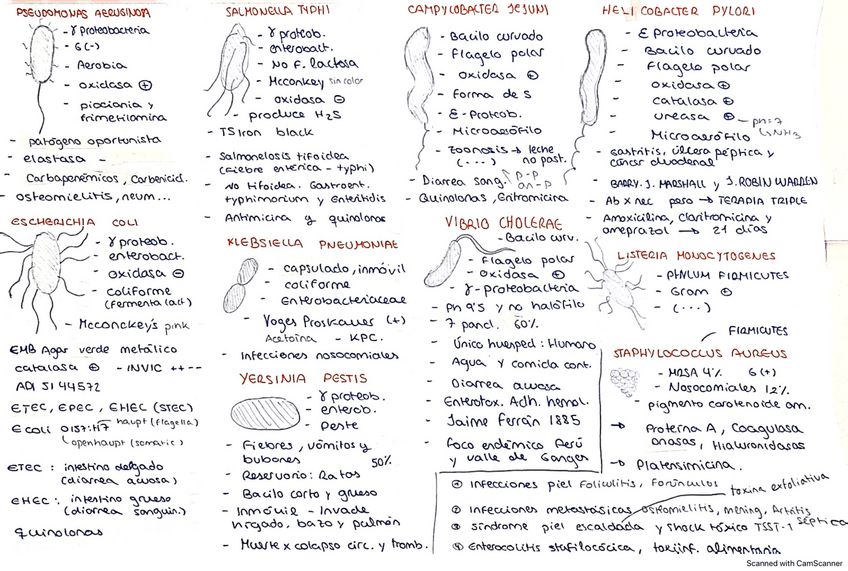 PSEUDOMONAS AERUGINOSA
- γ proteobacteria
- G(-)
- Aerobia
- oxidasa ⊕
- piocianina y
frimetilamina
- patógeno oportunista
- elastasa -
- Carbapenémicos, Carbenicid.
- osteomielitis, neum...
ESCHERICHIA COLI
- γ proteob.
- enterobact.
- oxidasa ⊖
- coliforme
(fermenta lact)
- Mcconckey's pink
EMB Agar verde metálico
catalasa ⊕ - INVIC ++--
ADI 51 44572
ETEC, EPEC, EHEC (STEC)
E coli O157:H7 haupt (flagella)
openhaupt (somatic)
ETEC : intestino delgado
(diarrea acuosa)
EHEC : intestino grueso
(diarrea sanguin.)
quinolonas
SALMONELLA TYPHI
- γ proteob.
- enterobact.
- No F. lactosa
- Mcconkey sin color
- oxidasa ⊖
- produce H2S
- TSIron black
- Salmonelosis tifoidea
(fiebre entérica - typhi)
- No tifoidea. Gastroent.
typhimorium y Enteritidis
- Antimicina y quinolonas
KLEBSIELLA PNEUMONIAE
- capsulado, inmóvil
- coliforme
- Enterobacteriaceae
- Voges Proskauer (+)
Acetoina - KPC.
- Infecciones nosocomiales
YERSINIA PESTIS
- γ proteob.
- enterob.
- Peste
- Fiebres, vómitos y
bubones 50%
- Reservorio: Ratas
- Bacilo corto y grueso
- Inmóvil - Invade
hígado, bazo y pulmón
- Muerte x colapso circ. y tromb.
CAMPYLOBACTER JEJUNI
- Bacilo curvado
- Flagelo polar
- oxidasa ⊕
- forma de S
- ε-Proteob.
- Microaerófilo
- zoonosis → leche
(...) no past.
- Diarrea sang. p-p
an-p
- Quinolonas, Eritromicina
VIBRIO CHOLERAE
- Bacilo curv.
- Flagelo polar
- oxidasa ⊕
- γ-proteobacteria
- Ph 9'5 y no halófilo
- 7 pand. 60%
- Único huesped: Humano
- Agua y comida cont.
- Diarrea acuosa
- Enterotox. Adh. hemol.
- Jaime Ferrán 1885
- Foco endémico Perú
y valle de Ganges
HELICOBACTER PYLORI
- ε Proteobacteria
- Bacilo curvado
- Flagelo polar
- oxidasa ⊕
- catalasa ⊕
- ureasa ⊕ - pH=7
↳NH3
- Microaerófilo
- gastritis, úlcera péptica y
cáncer duodenal
- BARRY. J. MARSHALL y J. ROBIN WARREN
- Ab x nec pero → TERAPIA TRIPLE
- Amoxicilina, Claritromicina y
omeprazol → 21 días
LISTERIA MONOCYTOGENES
- PHYLUM FIRMICUTES
- Gram ⊕
- (...)
FIRMICUTES
STAPHYLOCOCCUS AUREUS
- MRSA 4% G(+)
- Nosocomiales 12%
- pigmento carotenoide am.
→ Proteína A, Coagulasa
DNasas, Hialuronidasas
→ Platensimicina.
① Infecciones piel Foliculitis, Forúnculos
toxina exfoliativa
② Infecciones metastásicas osteomielitis, mening, Artritis
séptica
③ síndrome piel escaldada y shock tóxico TSST-1
④ Enterocolitis stafilocócica, toxiinf. alimentaria
Scanned with CamScanner